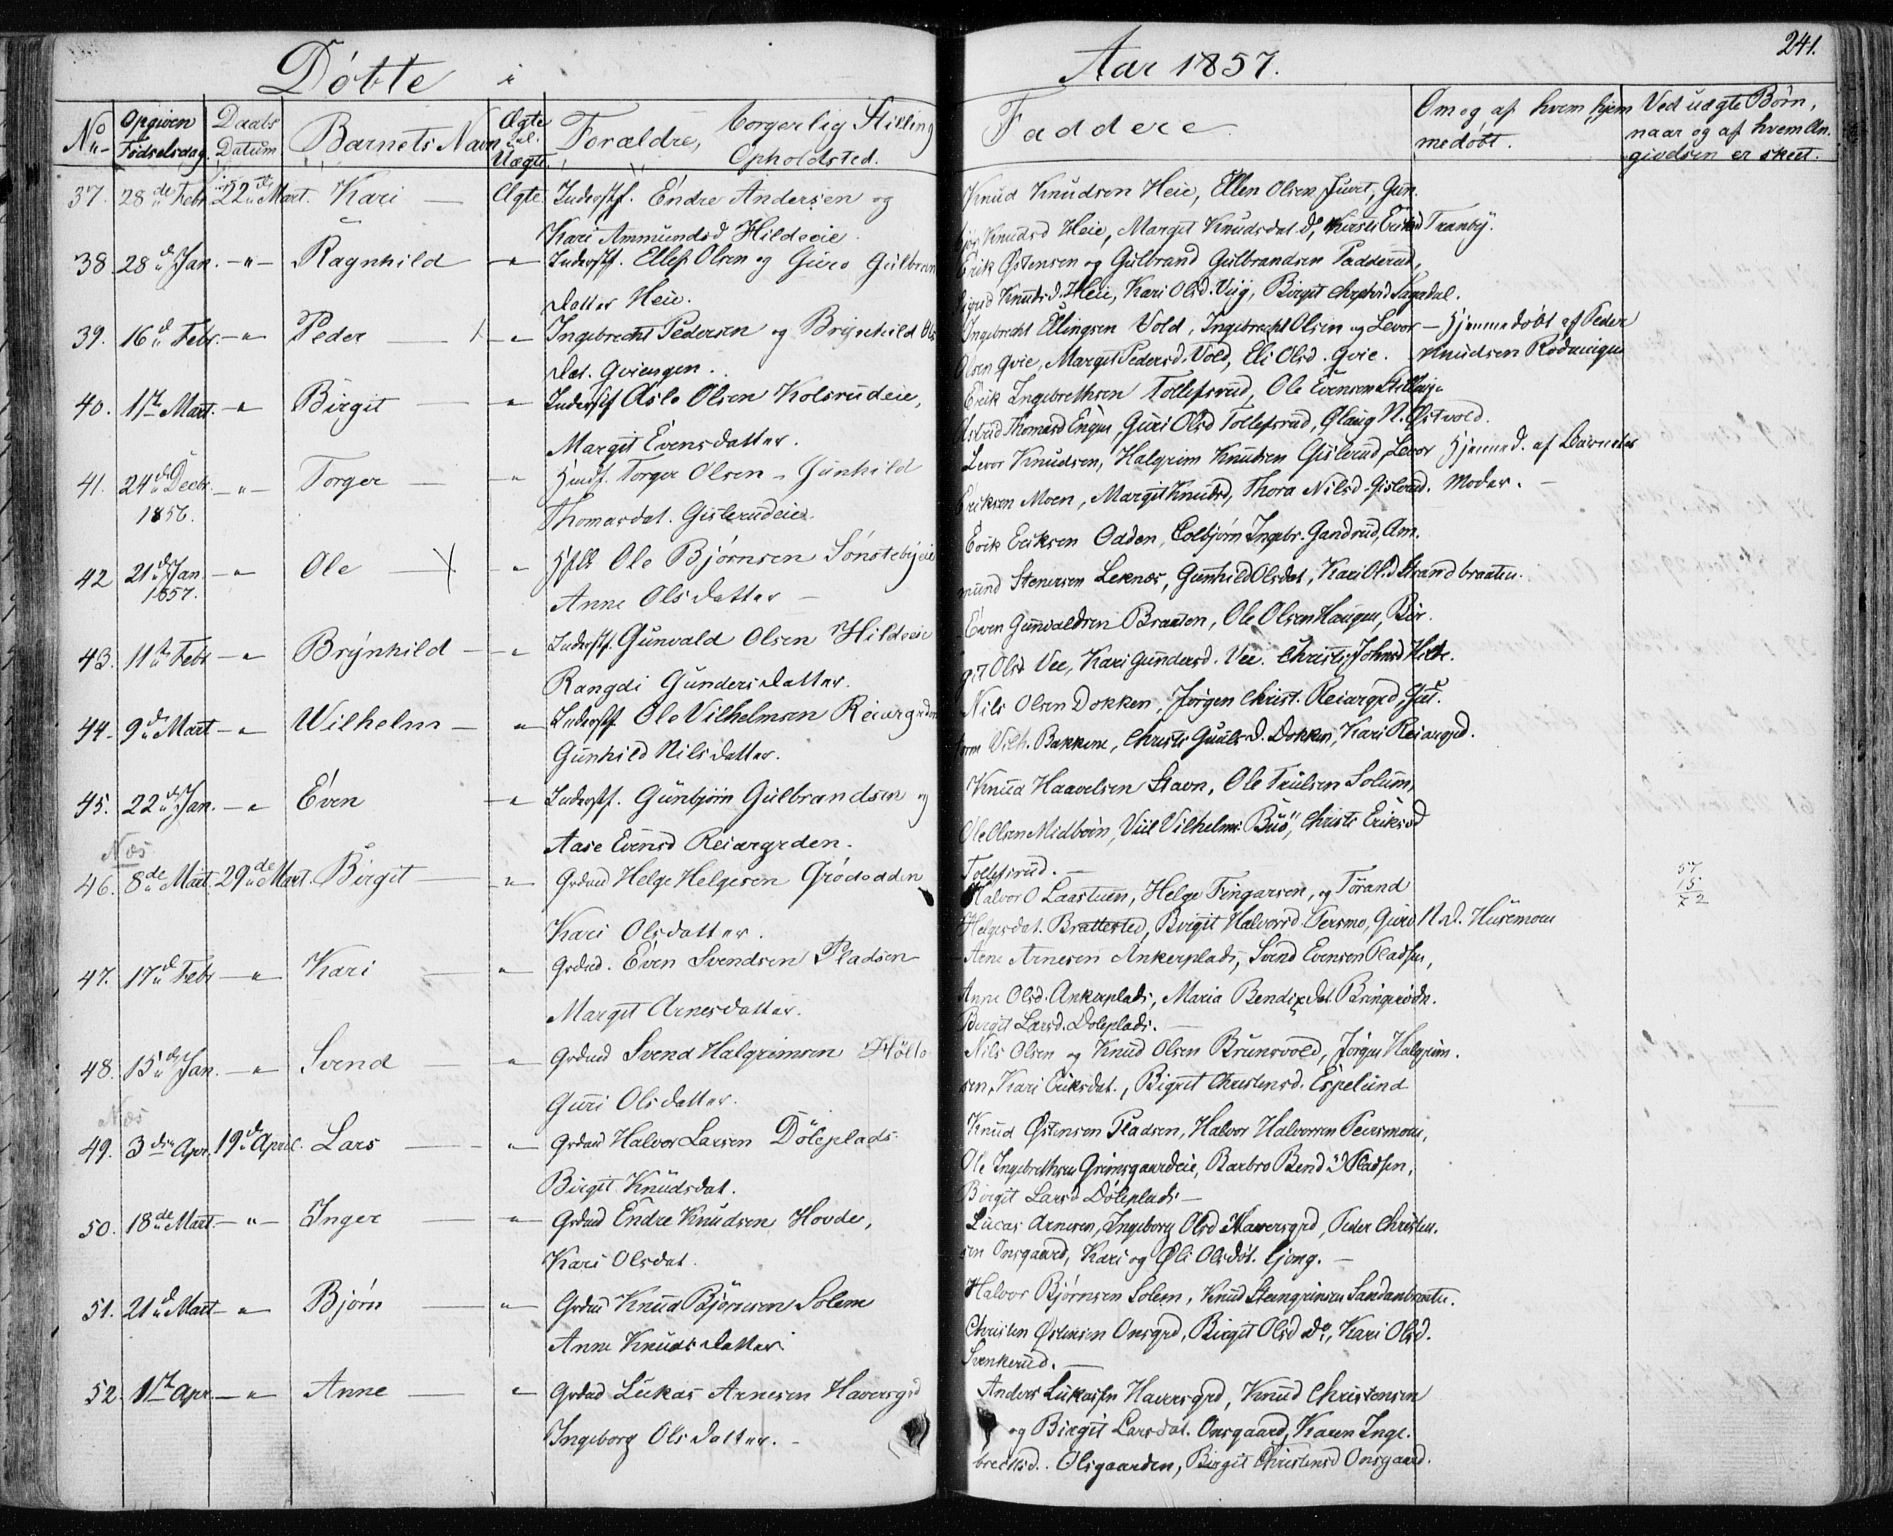 Döbte i Aar 1857.
241.
No Opgiven Fødselsdag. Daabs Datum Barnets Navn Ægte el. Uægte. Forældre, borgerlig Stilling Opholdsted. Faddere. Om og af hvem hjemmedøbt. Ved uægte Børn, naar og af hvem Angivelsen er skeet.
37. 28de Febr. 22de Mart. Kari — Ægte. Inderstf. Endre Andersen og
Kari Ammundsd Hildeeie.
Knud Knudsen Heie, Ellen Olsen Juvet, Gun
Knudsd Heie, Margit Knudsdat. Do, Kirsti Tranby.
38 28d Jan. —"— Ragnhild —"— Inderstf. Ellef Olsen og Guro Gulbran
datter Heie.
Erik Østensen og Gulbrand Gulbrandsen Padderud,
Sigrid Knudsd. Heie, Kari Olsd. Viig, Birgit Sagadal.
39. 16d Febr. —"— Peder —"— Ingebrecht Pedersen og Brynhild Ols
dat. Qviengen.
Ingebrecht Ellingsen Vold, Ingebrecht Olsen og Levor
Olsen Qvie, Margit Pedersd. Vold, Eli Olsd. Qvie.
— Hjemmedøbt af Peder
Knudsen Rödningen
40. 1te Mart. —"— Birgit —"— Inderstf Asle Olsen Kolsrudeie,
Margit Evensdatter.
Erik Ingebrethsen Tollefsrud, Ole Evensen
Astrid Thomasd Engen, Guri Olsd Tollefsrud, Ølaug N. Østvold.
41. 24d Decbr. 1856. —"— Torger —"— Huusf. Torger Olsen – Gunhild
Thomasdat. Gislerudeie.
Levor Knudsen, Halgrim Knudsen Gislerud, Levor
Eriksen Moen, Margit Knudsd, Thora Nilsd. Gislerud.
Hjemmed. af Barnets
Moder. —
42 21d Jan. 1857. —"— Ole —"— Ole Bjørnsen Sönstebyeie
Anne Olsdatter —
Erik Eriksen Odden, Colbjørn Ingebr. Gandrud, Am-
mund Stenersen Leknæs, Gunhild Olsdat, Kari Olsd Strandbraaten.
43. 11te Febr —"— Brynhild —"— Inderstf. Gunvald Olsen Hildeeie
Rangdi Gundersdatter.
Even Gunvaldsen Braaten, Ole Olsen Haugen, Bir-
git Olsd Vee, Kari Gundersd. Vee. Christi Johnsd Hilde.
44. 9de Mart —"— Wilhelm —"— Inderstf. Ole Vilhelmsen Reiargrden
Gunhild Nilsdatter.
Nils Olsen Dokken, Jørgen Christ. Reiargrd, Gut-
torm Vilh. Bakkene, Christi Dokken, Kari Reiargrd.
45. 22d Jan. —"— Even —"— Inderstf. Gunbjørn Gulbrandsen og
Aase Evensd Reiargrden.
Knud Haavelsen Stavn, Ole Trulsen Solum,
Ole Olsen Midbøin, Viil Vilhelms. Buö, Christi Eriksd
Tollefsrud. —
Næs
46. 8de Mart. 29de Mart. Birgit —"— Grdmd Helge Helgesen Grödodden
Kari Olsdatter.
Halvor O Laastuen, Helge Fingarsen, og Törand
Helgesdat. Brattested, Birgit Halvorsd Persmo, Guro N.d. Husemoen
57
15
72
47. 17d Febr —"— Kari —"— Grdmd. Even Svendsen Pladsen
Margit Arnesdatter.
Arne Arnesen Ankerplads, Svend Evensen Pladsen,
Anne Olsd. Ankerplads, Maria Bendixdat. Bringerödn.
Birgit Larsd. Doleplads. —
48. 15de Jan. —"— Svend —"— Grdmd Svend Halgrimsen Hölto
Guri Olsdatter.
Nils Olsen og Knud Olsen Brunsvold, Jørgen Halgrim-
sen, Kari Eriksdat., Birgit Christensd. Espelund
Næs
49. 3die Apr. 19d April. Lars —"— Grdmd Halvor Larsen Döleplads
Birgit Knudsdat.
Knud Østensen Pladsen, Halvor Halvorsen Persmoen,
Ole Ingebrethsen Grimsgaardeie, Barbro Bend.d Pladsen,
Birgit Larsd Döleplads —
50. 18de Mart —"— Inger —"— Grdmd Endre Knudsen Hovde,
Kari Olsdat.
Lucas Arnesen, Ingeborg Olsd Haversgrd, Peder Christen-
sen Onsgaard, Kari og Øli Olsdöt. Gjeng. —
51. 21d Mart —"— Bjørn —"— Grdmd Knud Bjørnsen Solem
Anne Knudsdatter.
Halvor Bjørnsen Solem, Knud Steengrimsen Sandenbraaten.
Christen Østensen Onsgrd, Birgit Olsd Do, Kari Olsd.
Svenkerud. —
52. 1te Apr. —"— Anne —"— Grdmd Lukas Arnesen Haversgrd
Ingeborg Olsdatter. —
Anders Lukassen Haversgrd, Knud Christensen
og Birgit Larsdat. Onsgaard, Karen Inge-
brectsd. Olsgaarden, Birgit Christensd Onsgaard.